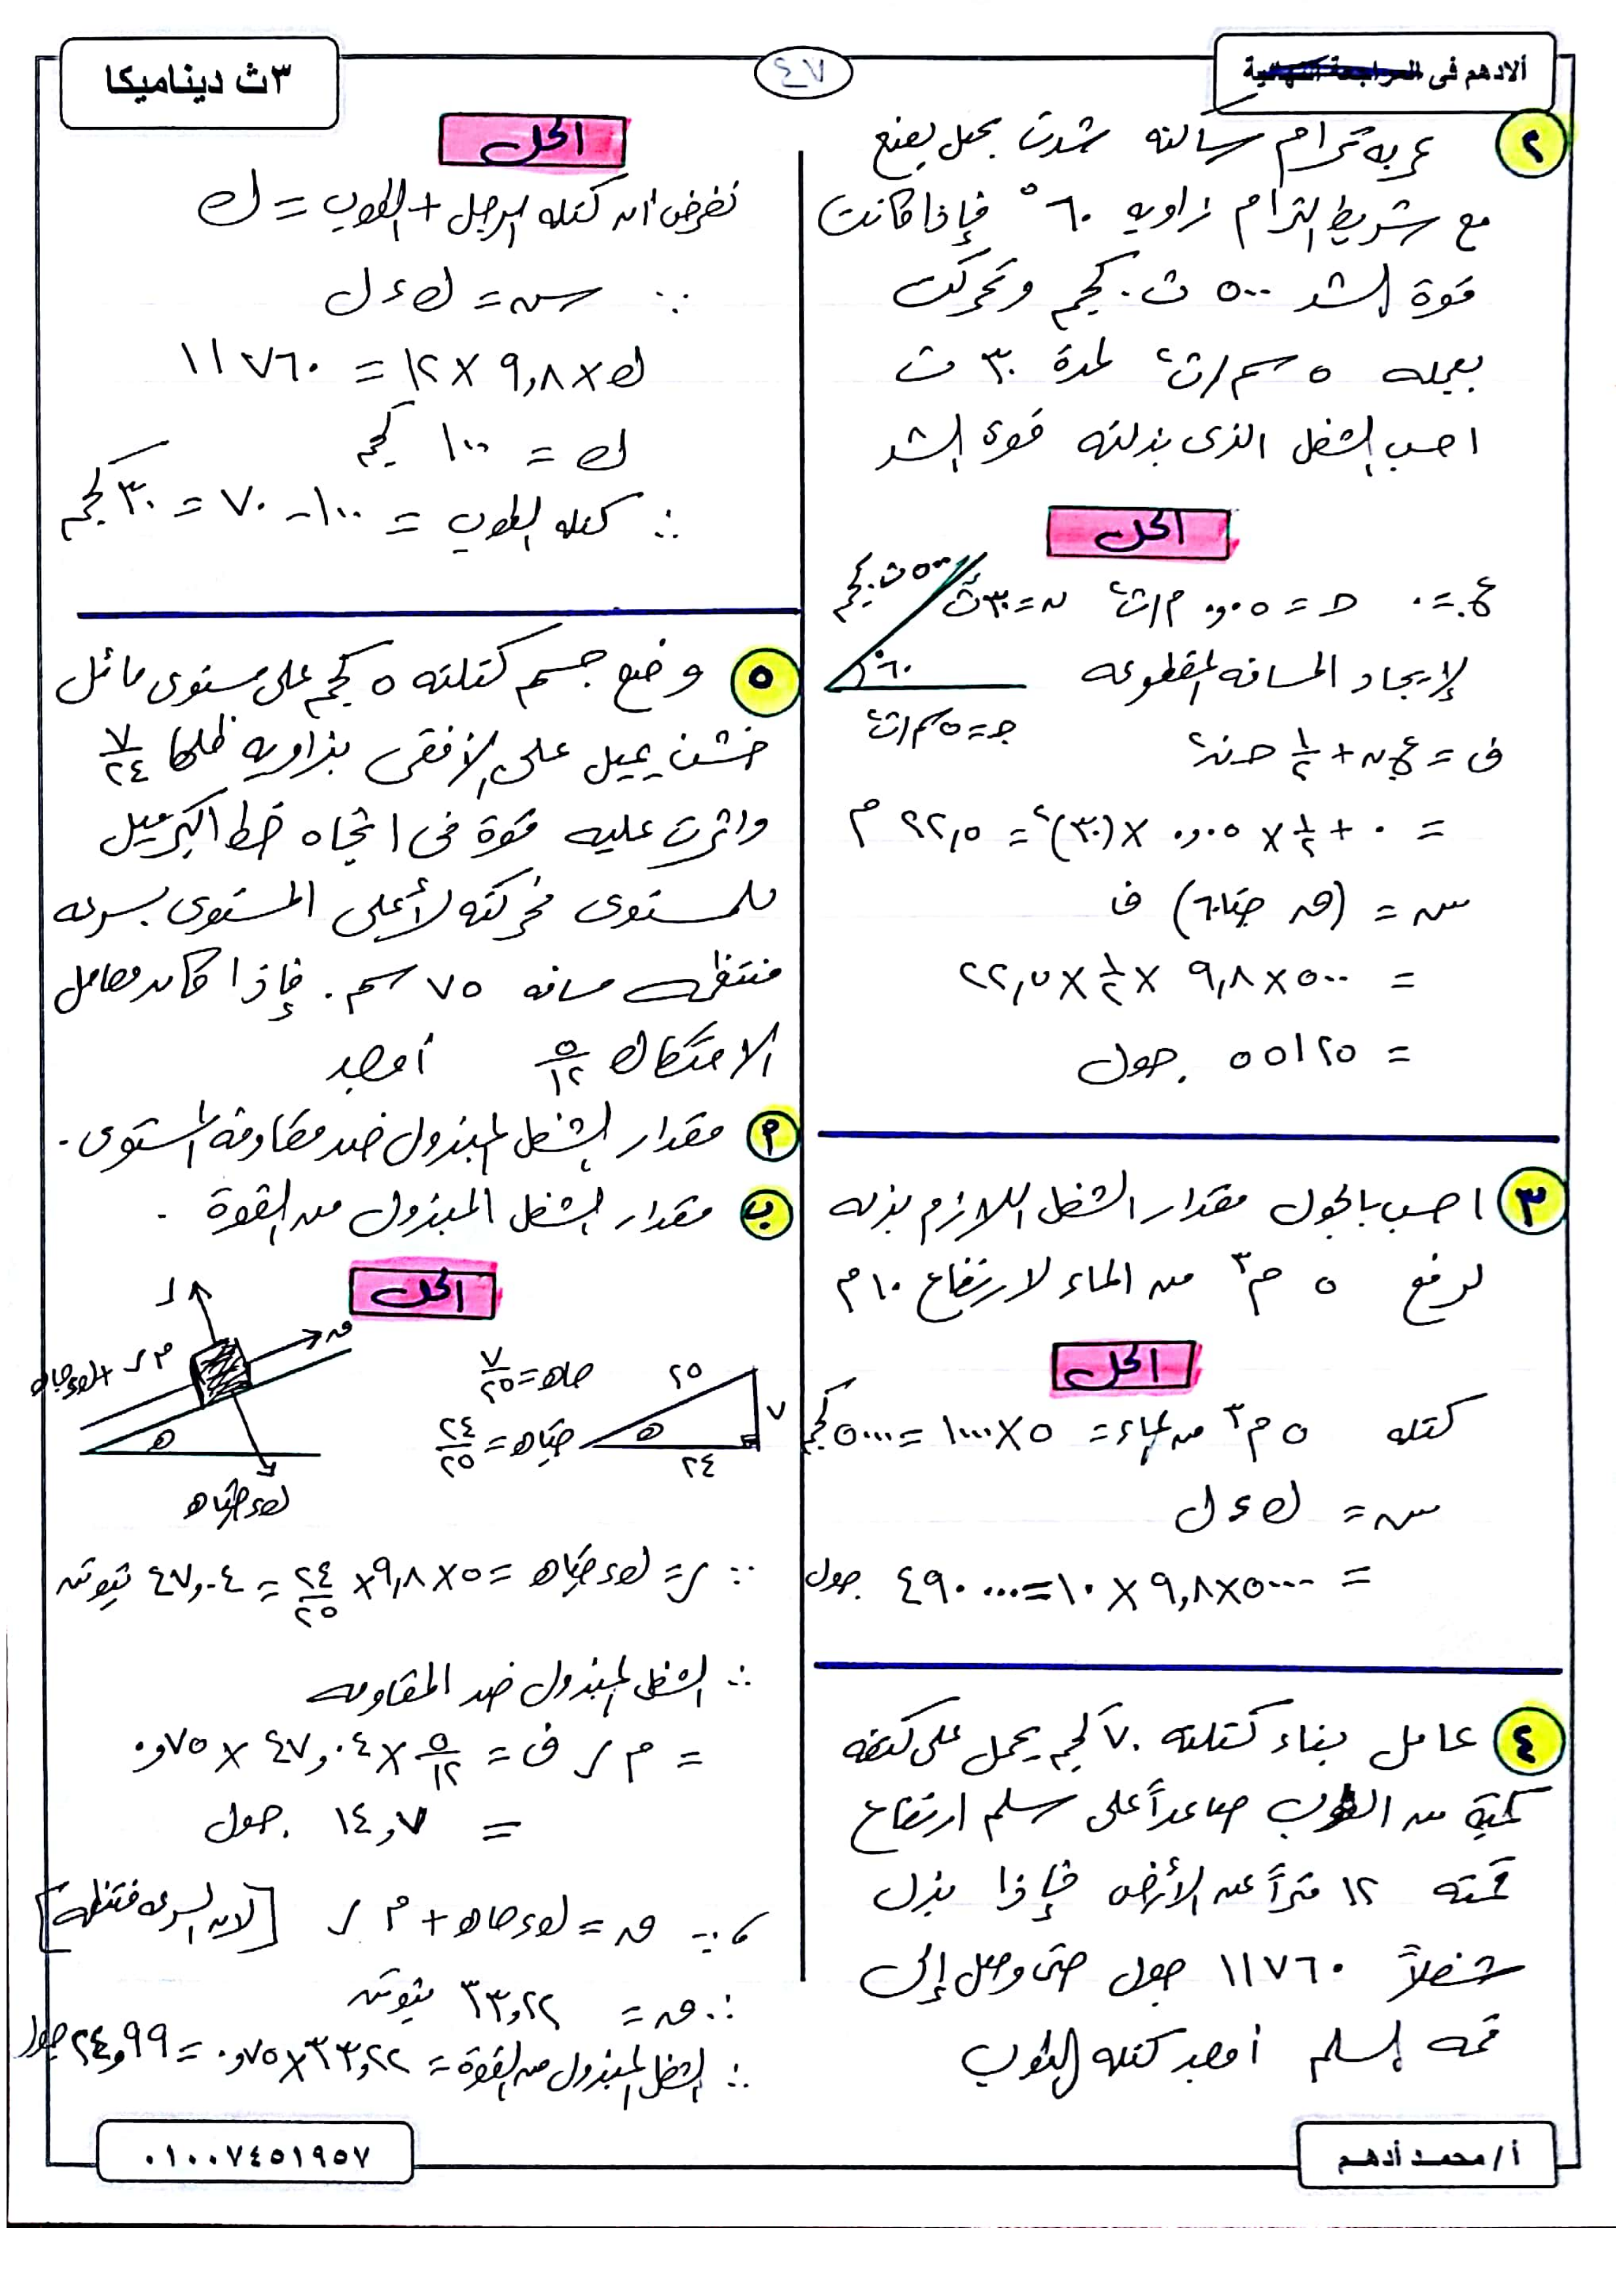 ألادهم فى المراجعة النهائية
٤٧
٣ث ديناميكا
٢ عربه ترام ساكنه شدت بحبل يصنع
مع شريط الترام زاويه ٦٠° فإذا كانت
قوة الشد ٥٠٠ ث.كجم وتحركت
بعجله ٥ سم/ث٢ لمدة ٣٠ ث
احسب الشغل الذى بذلته قوة الشد
الحل
ع.=٠ حـ=٠,٠٥ م/ث٢ ن=٣٠ث
٥٠٠ ث.كجم
٦٠°
جـ=٥سم/ث٢
لإيجاد المسافه المقطوعه
ف = ع.ن + ١/٢ حـ ن٢
= ٠ + ١/٢ × ٠,٠٥ × (٣٠)٢ = ٢٢,٥ م
سہ = (قہ جتا٦٠) ف
= ٥٠٠×٩,٨ × ١/٢ ×٢٢,٥
= ٥٥١٢٥ جول
٣ احسب بالجول مقدار الشغل اللازم بذله
لرفع ٥ م٣ من الماء لارتفاع ١٠م
الحل
كتله ٥ م٣ من الماء = ٥×١٠٠٠ = ٥٠٠٠كجم
سہ = ك ء ل
= ٥٠٠٠×٩,٨ × ١٠ = ٤٩٠٠٠٠ جول
٤ عامل بناء كتلته ٧٠ كجم يحمل على كتفه
كمية من الطوب صاعداً على سلم ارتفاع
قمته ١٢ متراً عن الأرض فإذا بذل
شغلاً ١١٧٦٠ جول حتى وصل إلى
قمه السلم أوجد كتله الطوب
الحل
نفرض أن كتله الرجل + الطوب = ك
∴ سہ = ك ء ل
ك × ٩,٨ × ١٢ = ١١٧٦٠
ك = ١٠٠ كجم
∴ كتله الطوب = ١٠٠ - ٧٠ = ٣٠ كجم
٥ وضع جسم كتلته ٥ كجم على مستوى مائل
خشن يميل على الأفقى بزاويه ظلها ٧/٢٤
واثرت عليه قوة فى اتجاه خط اكبر ميل
للمستوى فحركته لأعلى المستوى بسرعه
منتظمه مسافه ٧٥ سم . فإذا كان معامل
الاحتكاك ٥/١٢ أوجد
أ مقدار الشغل المبذول ضد مقاومة المستوى .
ب مقدار الشغل المبذول من القوة .
الحل
ر
قہ
م ر + ك ء جاه
ه
ك ء جتاه
جاه = ٧/٢٥
جتاه = ٢٤/٢٥
٢٥
٧
ه
٢٤
∴ ر = ك ء جتاه = ٥ × ٩,٨ × ٢٤/٢٥ = ٤٧,٠٤ نيوتن
∴ الشغل المبذول ضد المقاومه
= م ر ف = ٥/١٢ × ٤٧,٠٤ × ٠,٧٥
= ١٤,٧ جول
،∵ قہ = ك ء جاه + م ر [لان السرعه منتظمة]
∴ قہ = ٣٣,٢٢ نيوتن
∴ الشغل المبذول من القوة = ٣٣,٢٢×٠,٧٥ = ٢٤,٩٩ جول
أ / محمـد أدهـم
٠١٠٠٧٤٥١٩٥٧